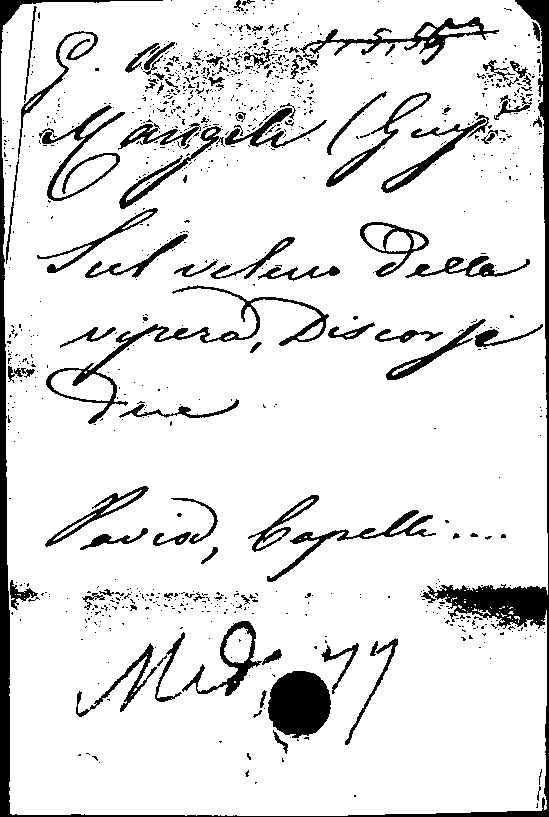 G. 11
Mangili (Giuse
Sul veleno della
vipera, Discorsi
due
Pavia, Capelli....
Med. 77